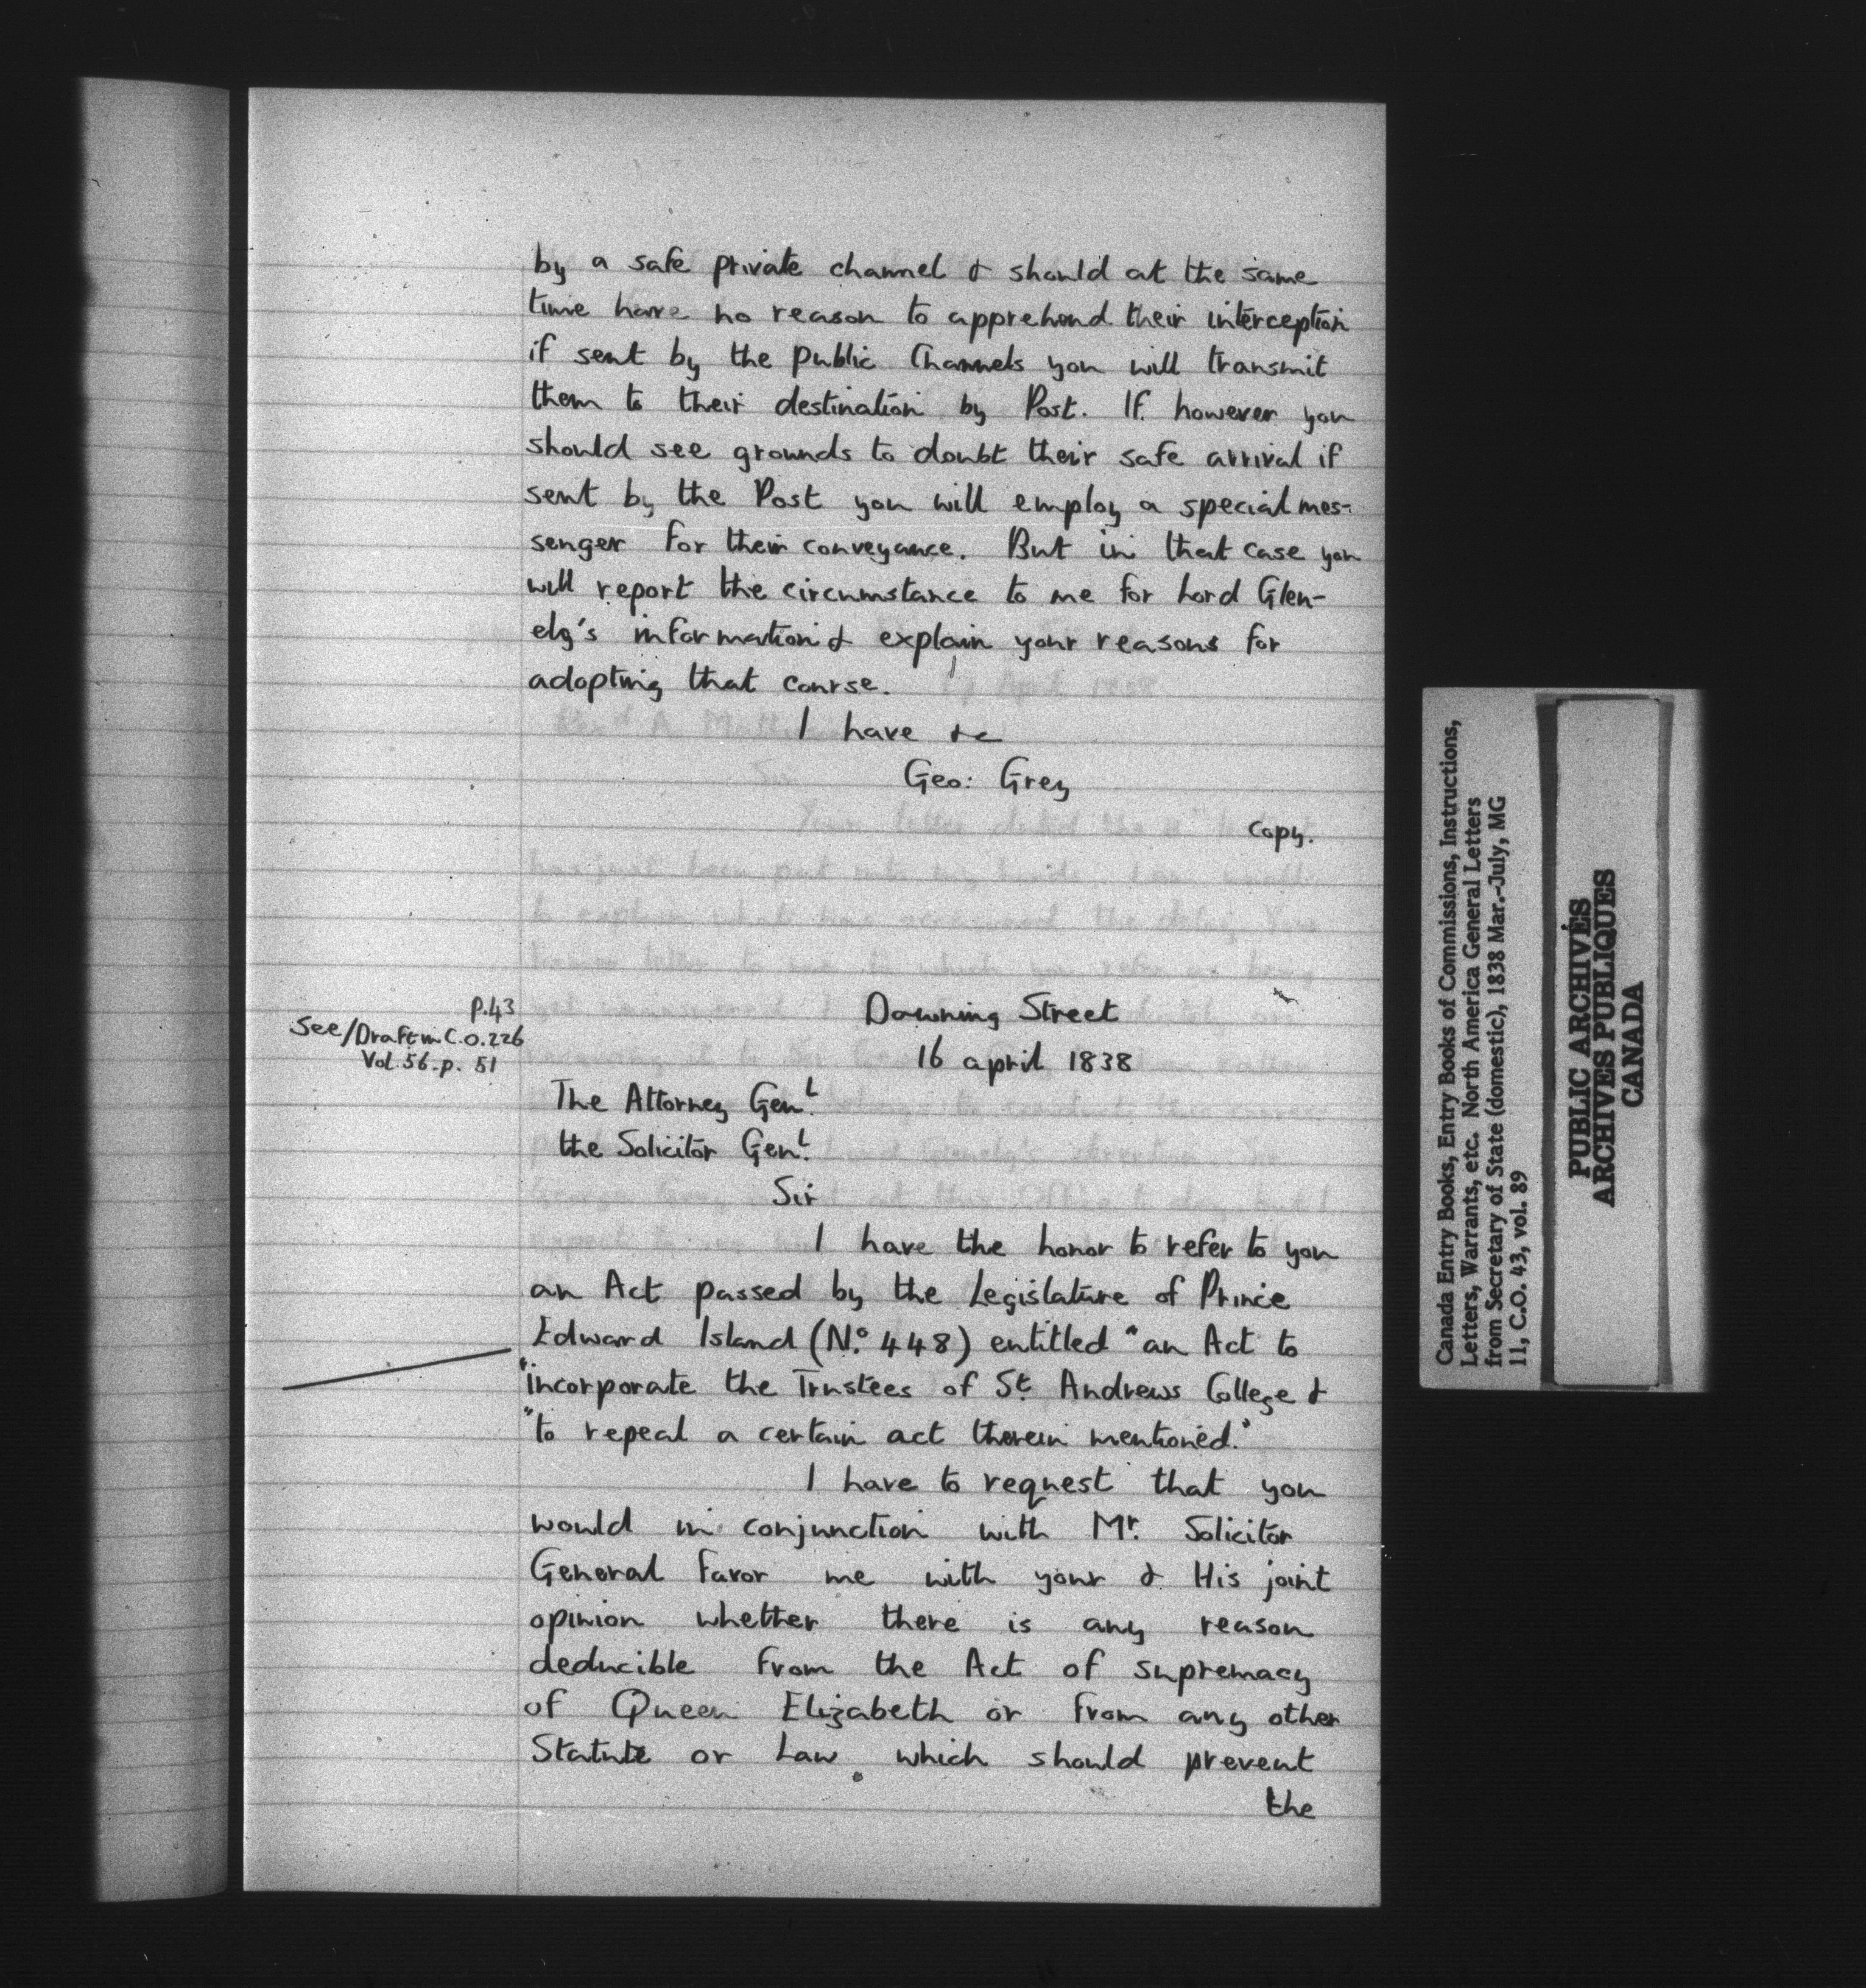 by a safe private channel & should at the same
time have no reason to apprehend their interception
if sent by the public Channels you will transmit
them to their destination by Post. If however you
should see grounds to doubt their safe arrival if
sent by the Post you will employ a special mes-
senger for their conveyance. But in that case you
will report the circumstance to me for Lord Glen-
elg's information & explain your reasons for
adopting that course.
I have &c
Geo: Grey
Copy.
P.43
See/Draft in C.O.226
Vol.56.p. 51
Downing Street
16 april 1838
The Attorney Genl.
the Solicitor Genl.
Sir
I have the honor to refer to you
an Act passed by the Legislature of Prince
Edward Island (No. 448) entitled "an Act to
"incorporate the Trustees of St. Andrews College &
"to repeal a certain act therein mentioned."
I have to request that you
would in conjunction with Mr. Solicitor
General favor me with your & His joint
opinion whether there is any reason
deducible from the Act of supremacy
of Queen Elizabeth or from any other
Statute or Law which should prevent
the
Canada Entry Books, Entry Books of Commissions, Instructions,
Letters, Warrants, etc. North America General Letters
from Secretary of State (domestic), 1838 Mar.-July, MG
11, C.O. 43, vol. 89
PUBLIC ARCHIVES
ARCHIVES PUBLIQUES
CANADA